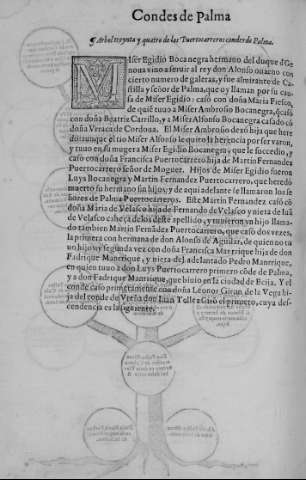 Condes de Palma
¶ Arbol treynta y quatro de los Puertocarreros condes de Palma.
MIser Egidio Bocanegra hermano del duque d'Ge
noua vino a seruir al rey don Alonso onzeno con
cierto numero de galeras, y fue almirante de Ca-
stilla y señor de Palma, que oy llaman por su cau-
sa de Miser Egidio: caso con doña Maria Fiesco,
de quiē tuuo a Miser Ambrosio Bocanegra, q̄ casó
con doña Beatriz Carrillo, y a Miser Alfonso Bocanegra casado cō
doña Vrraca de Cordoua. El Miser Ambrosio dexó hija que here
do aunque el tio Miser Alfonso le quito la herencia por ser varon,
y tuuo en su muger a Miser Egidio Bocanegra, que le succedio, y
caso con doña Francisca Puertocarrero hija de Martin Fernandez
Puertocarrero señor de Moguer. Hijos de Miser Egidio fueron
Luys Bocanegra y Martin Fernandez Puertocarrero, que heredò
muerto su hermano sin hijos, y de aqui adelante se llamaron los se
ñores de Palma Puertocarreros. Este Martin Fernandez casó cō
doña Maria de Velasco hija de Fernando de Velasco y nieta de Iuā
de Velasco cabeça de los deste apellido, y tuuieron vn hijo llama-
do tambien Martin Fernādez Puertocarrero, que casó dos vezes,
la primera con hermana de don Alonso de Aguilar, de quien no tu
uo hijos, y la segunda vez con doña Francisca Manrrique hija de don
Fadrique Manrrique, y nieta del adelantado Pedro Manrrique,
en quien tuuo a don Luys Puertocarrero primero cōde de Palma,
y a don Fadrique Manrrique, que biuio en la ciudad de Ecija. El
conde caso primeramente con doña Leonor Giron de la Vega hi-
ja del conde de Vreña don Iuan Tellez Girō el primero, cuya des-
cendencia es la siguiente.